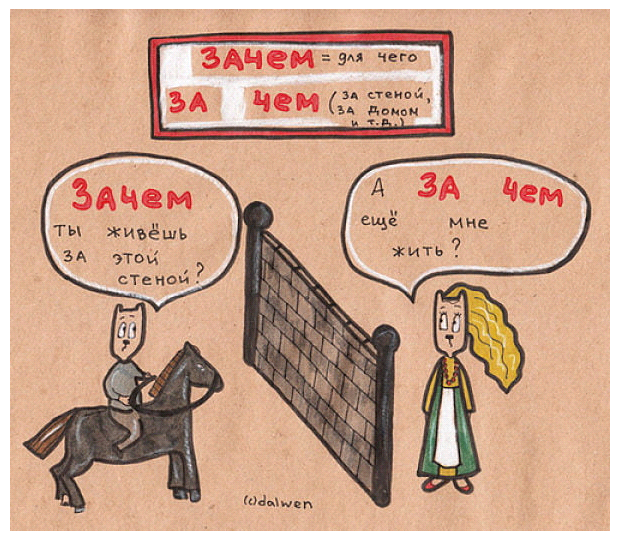 ЗАЧЕМ = для чего
ЗА ЧЕМ (за стеной,
за домом
и т.д.)
ЗАЧЕМ
ты живёшь
за этой
стеной?
А ЗА ЧЕМ
ещё мне
жить?
(c)dalwen